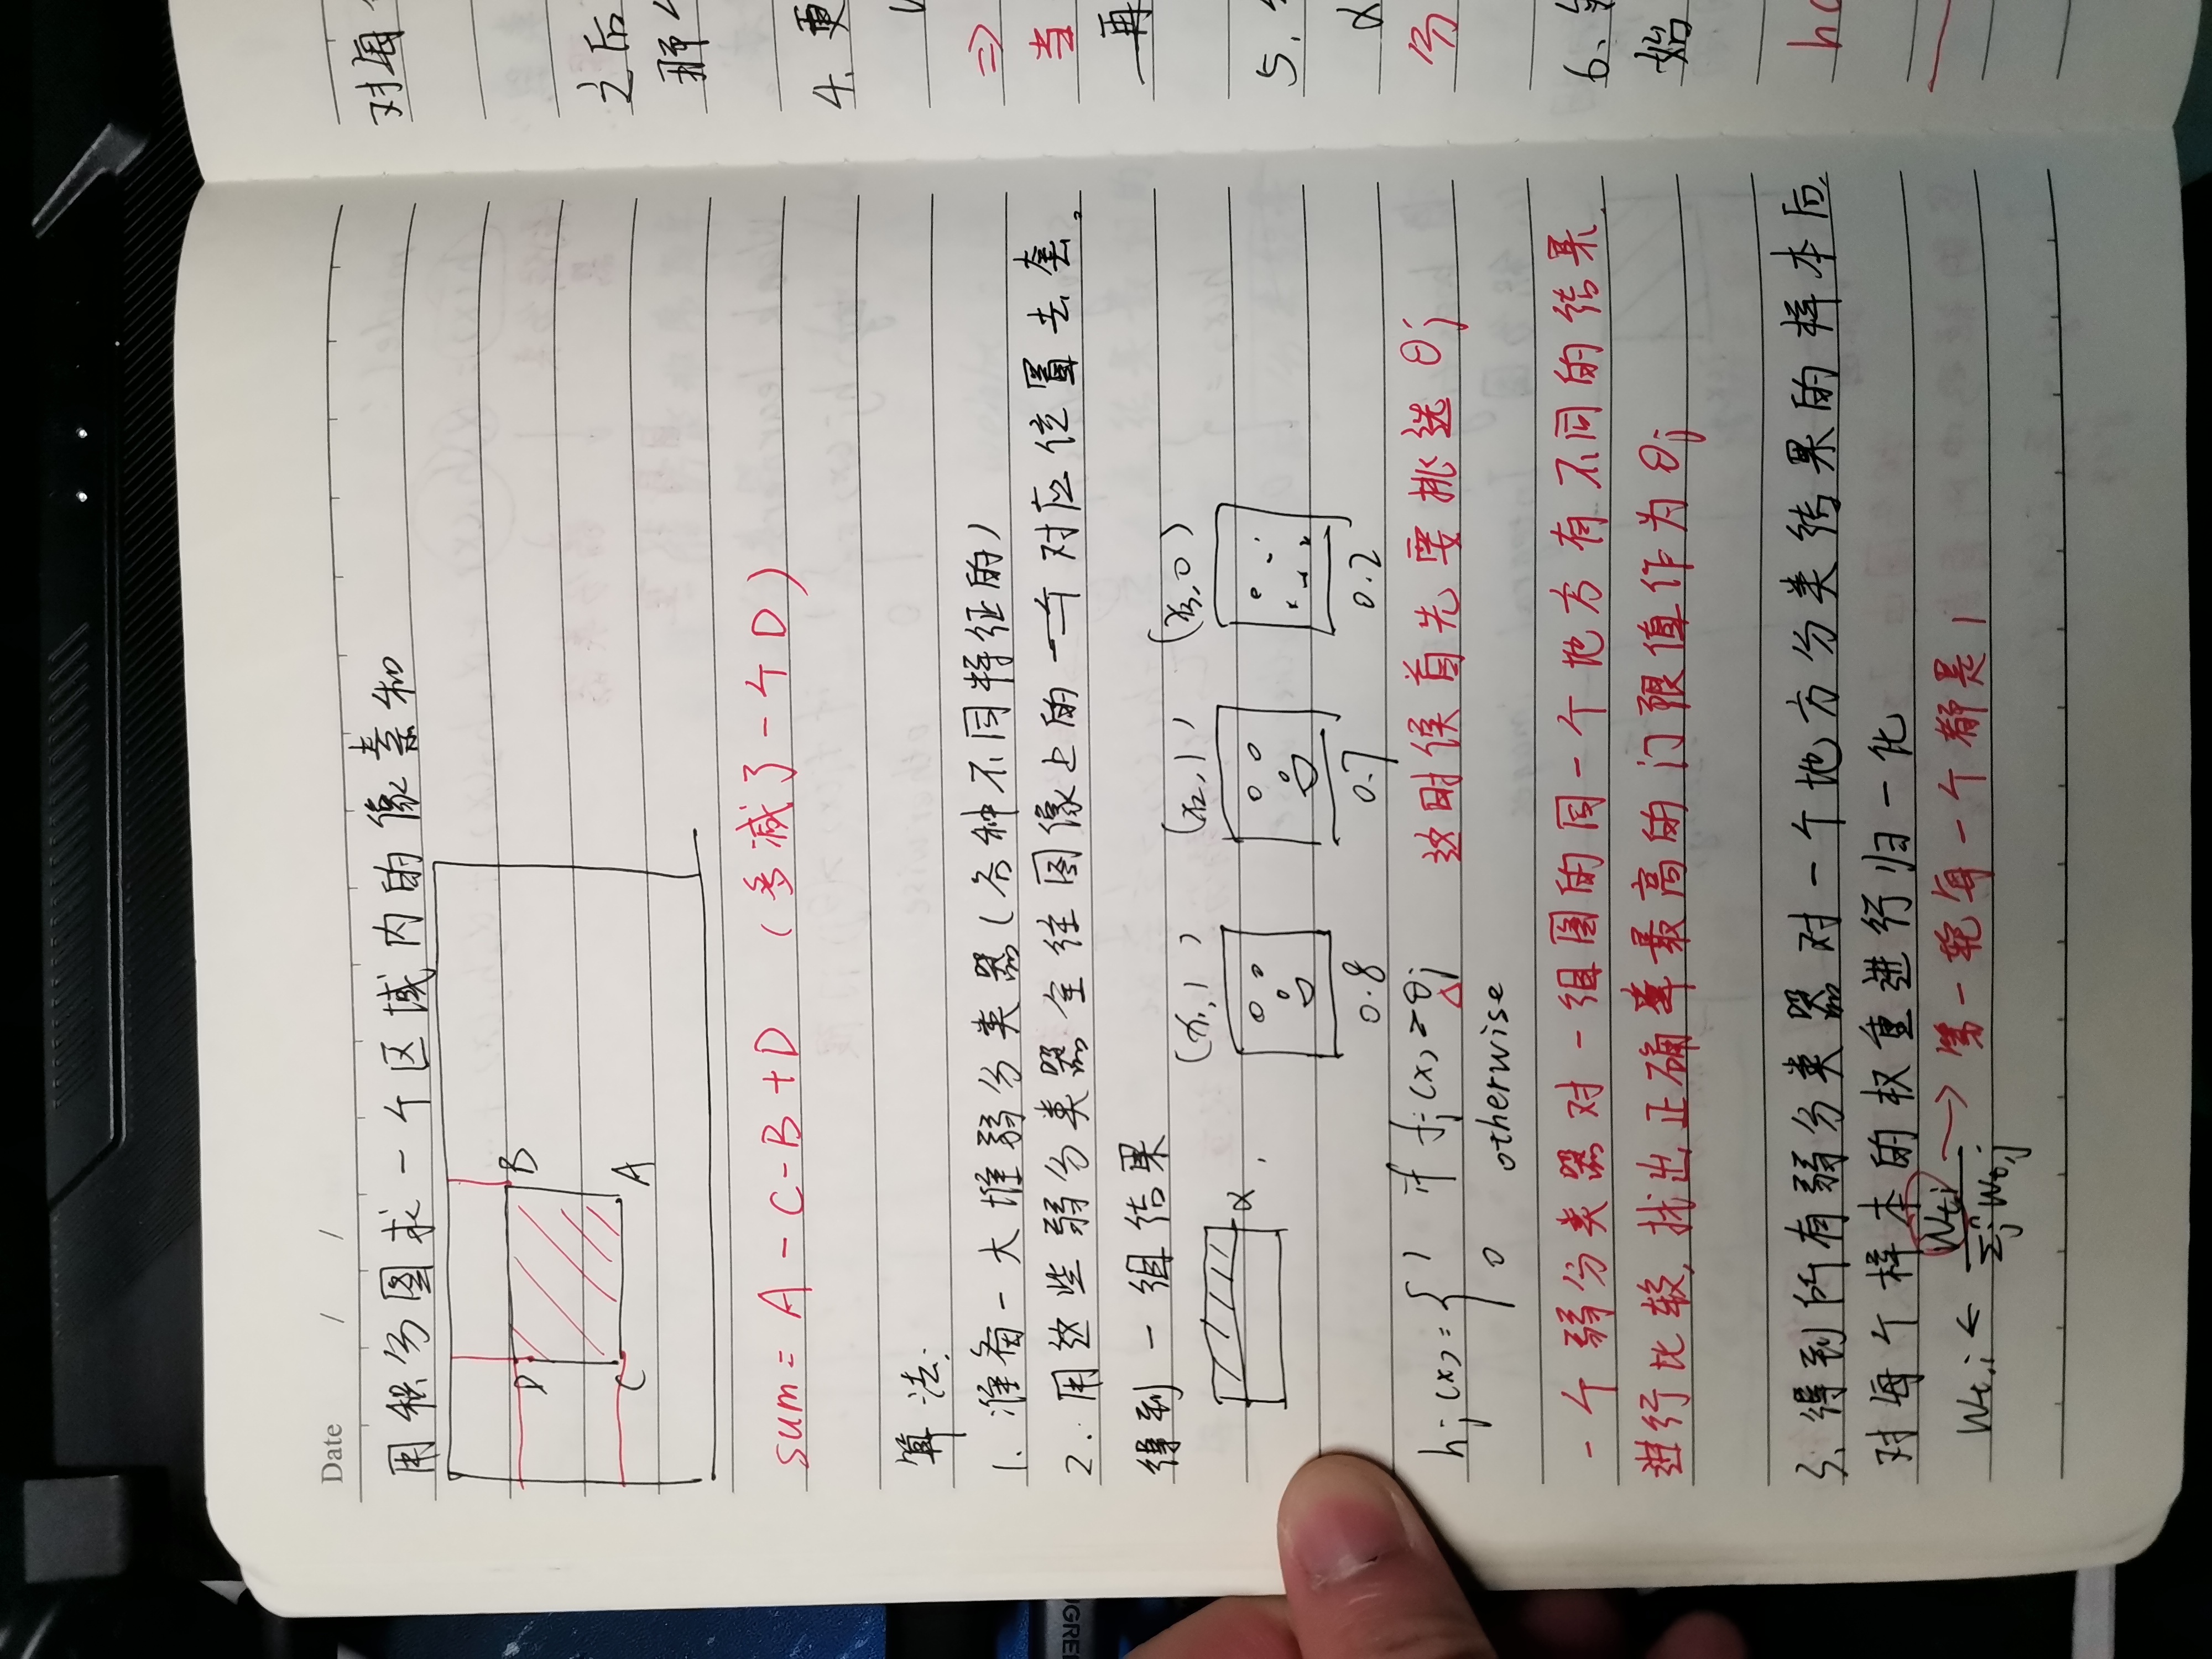 Date / /
用积分图求一个区域内的像素和
D B
C A
sum = A - C - B + D (多减了一个D)
算法:
1. 准备一大堆弱分类器(各种不同特征的)
2. 用这些弱分类器全往图像上的一个对应位置去套。
得到一组结果
(x₁,1) (x₂,1) (x₃,0)
α
0.8 0.7 0.2
hj(x) = { 1 if fj(x) > θj 这时候首先要挑选 θj
0 otherwise
一个弱分类器对一组图的同一个地方有不同的结果.
进行比较,找出正确率最高的门限值作为θj
3、得到所有弱分类器对一个地方分类结果的样本后,
对每个样本的权重进行归一化
Wt,i ← Wt,i / Σj Wt,j → 第一轮每一个都是1
对每
之后
那
4. 更
⇒
当
再
5.
α
分
6、
始